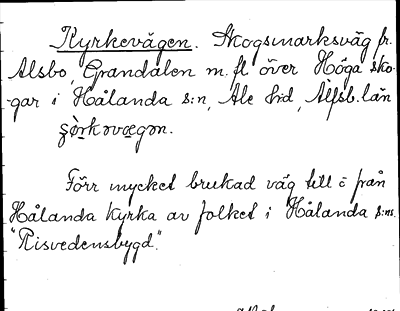 Kyrkevägen. Skogsmarksväg fr.
Alsbo, Grandalen m. fl. över Höga sko-
-gar i Hålanda s:n, Ale hd, Älfsb. län
Förr mycket brukad väg till o från
Hålanda kyrka av folket i Hålanda s:ns
"Risvedensbygd".